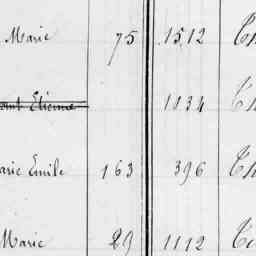 Marie 75 1512
Etienne 1134
Marie Emile 163 396
Marie 29 1112